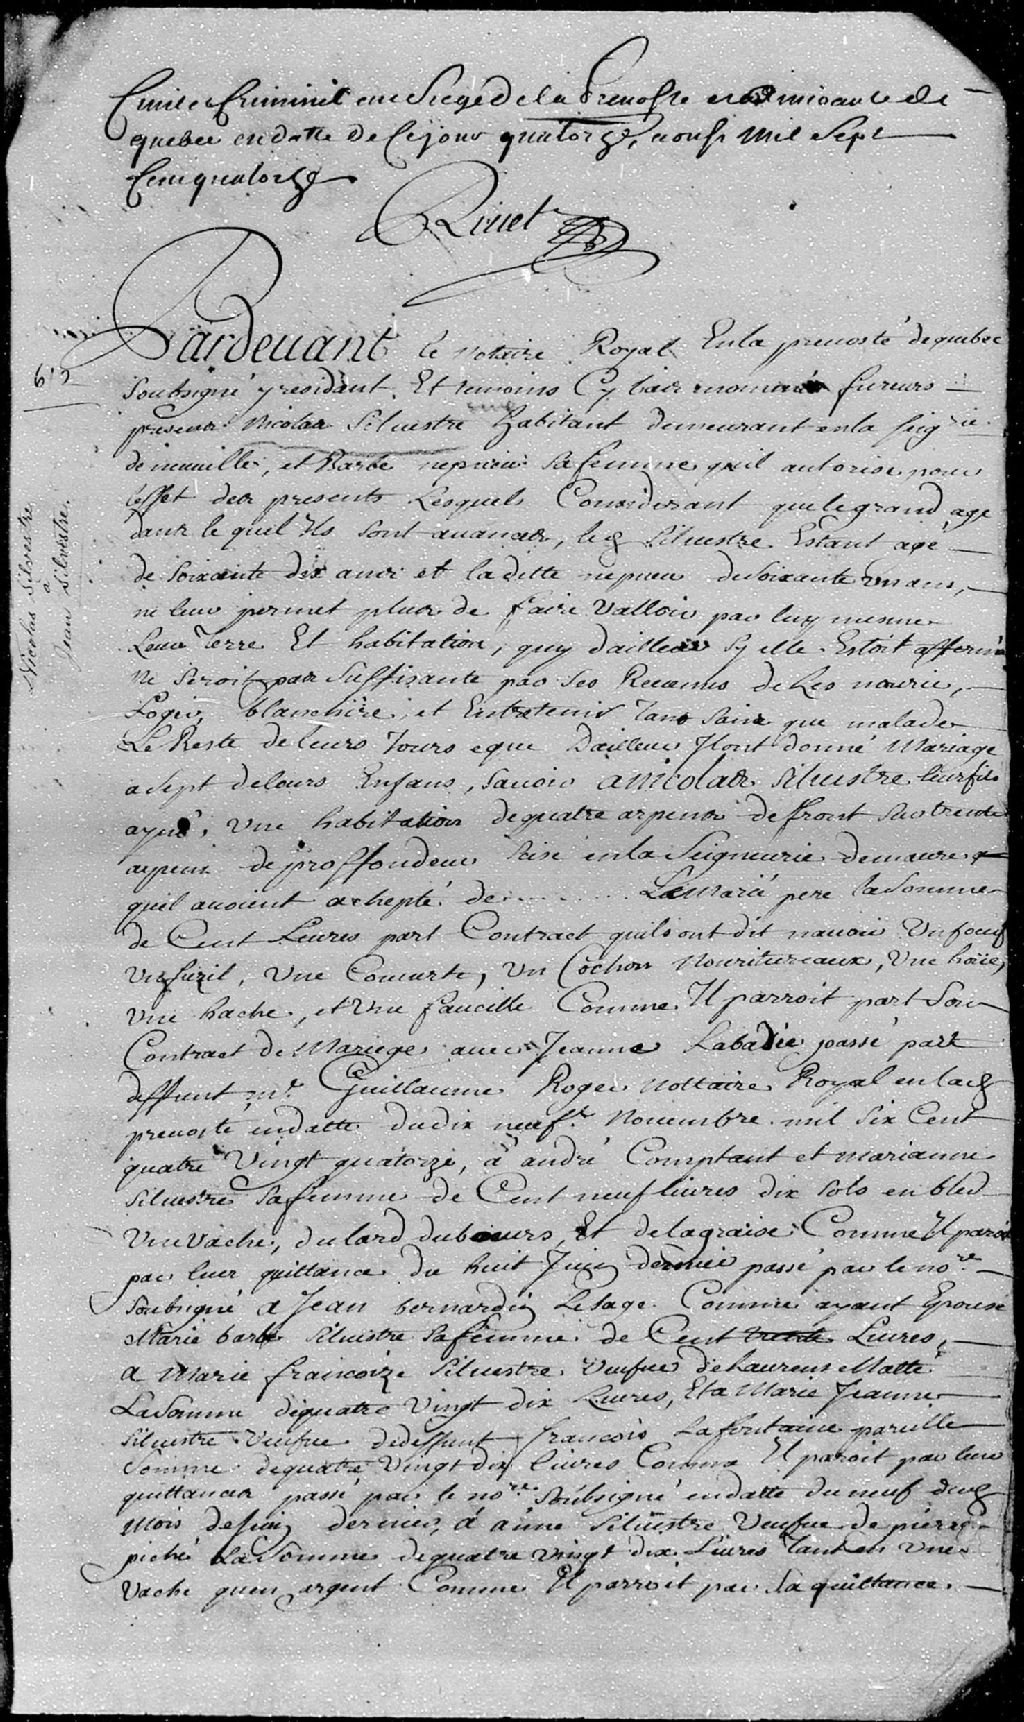 Ciuil et Criminel au Siege de la Preuosté et admirauté de
quebec en datte de Cejour quatorze, aoust Mil Sept
Cent quatorze
Riuet
Pardeuant le Notaire Royal En la preuosté de quebec
soubsigné y residant Et temoins Cy bas nommés furents
presens Nicolas Siluestre habitant demeurant en la seig.rie
de neuuille, et Barbe nepueu Sa femme quil autorise pour
leffet des presents Lesquels Considerant que le grand age
dans le quel Ils sont auancés, led Siluestre Estant agé
de soixante dix ans et laditte nepueu de soixante un ans,
ne leur permet plus de faire Valloir par luy mesme
Leur Terre Et habitation, quy dailleurs Sy elle Estoit affermée
Ne seroit pas Suffisante par Ses Reuenus de Les nourir,
Loger, blanchire, et Entretenir Tans Sains que malades
Le Reste de leurs Jours et que Dailleurs Ils ont donné Mariage
a Sept de leurs Enfans, Sauoir a nicolas Siluestre leur fils
aysné, Une habitation de quatre arpens de front Sur trente
arpens de proffondeur Sise en la Seigneurie demaure
quil auoient achepté de ........ Lemarié pere la Somme
de Cent Liures part Contract quils ont dit nauoir Un boeuf
Un fuzil, Une Couuerte, Un Cochon Nouritureaux, Une hoüe,
Une hache, et Une faucille Comme Il parroit part Son
Contract de Mariege auec Jeanne Labadie passé part
deffunt m.e Guillaume Roger Nottaire Royal en lad
preuosté en datte du dix neuf.e Nouembre mil six Cent
quatre Vingt quatorze, a andré Comptant et marianne
Siluestre Sa femme de Cent neuf liures dix sols en bled
Une Vache, du lard du beurs, Et de la graise Comme Il paroit
par leur quittance du huit Juin dernier passé par le no.re
Soubsigné a Jean bernardin Lesage Comme ayant Epousé
Marie barbe Siluestre Sa femme de Cent trente Liures,
a Marie francoize Siluestre Veufue de Laurens Matte
La Somme de quatre Vingt dix Liures, Et a Marie Jeanne
Siluestre Veufue de deffunt francois Lafontaine pareille
Somme de quatre Vingt dix liures Comme Il paroit par leur
quittances passé par le no.re Soubsigné en datte du neuf dud
Mois de juin dernier, a anne Siluestre Veufue de pierre
piché La Somme de quatre Vingt dix Liures Tant en Une
Vache quen argent Comme Il parroit par Sa quittance
Nicolas Silvestre
à
Jean Silvestre.